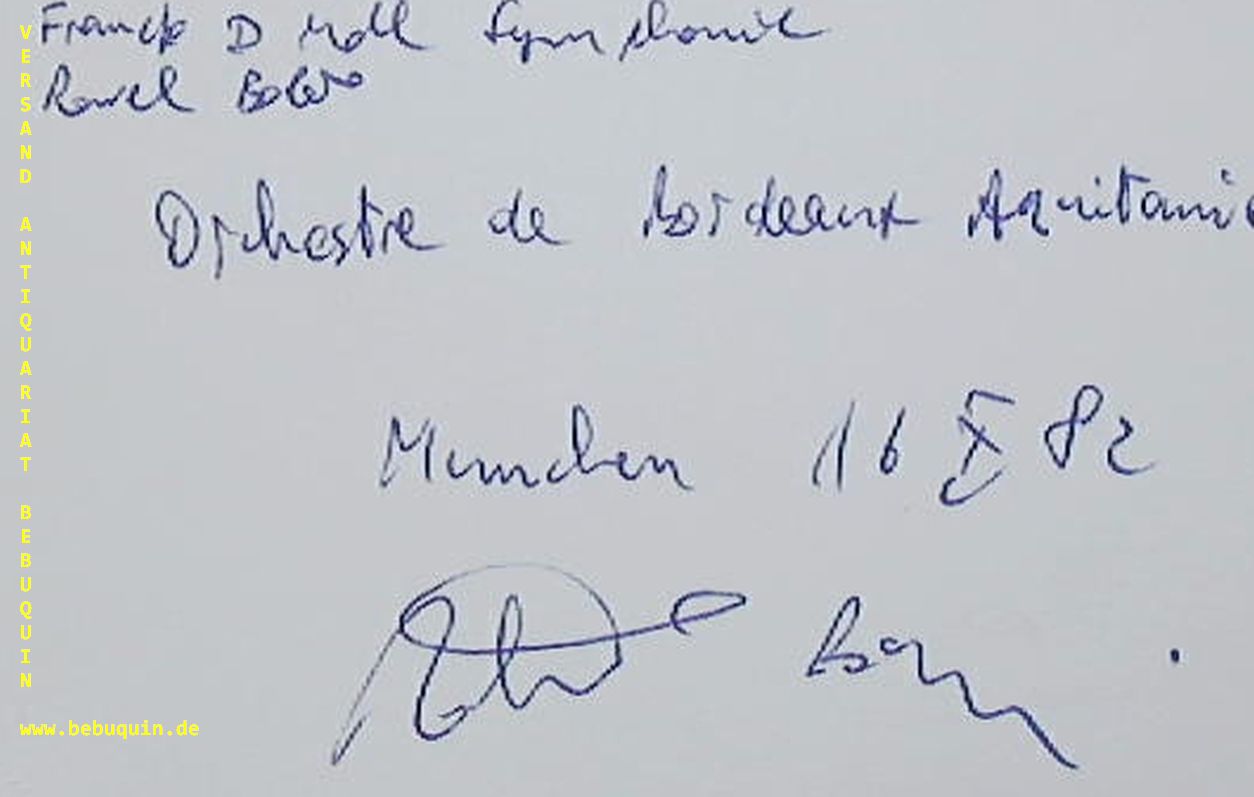 Franck D Moll Symphonie
Ravel Bolero
Orchestre de Bordeaux Aquitanie
München 16 X 82
VERSAND ANTIQUARIAT BEBUQUIN
www.bebuquin.de